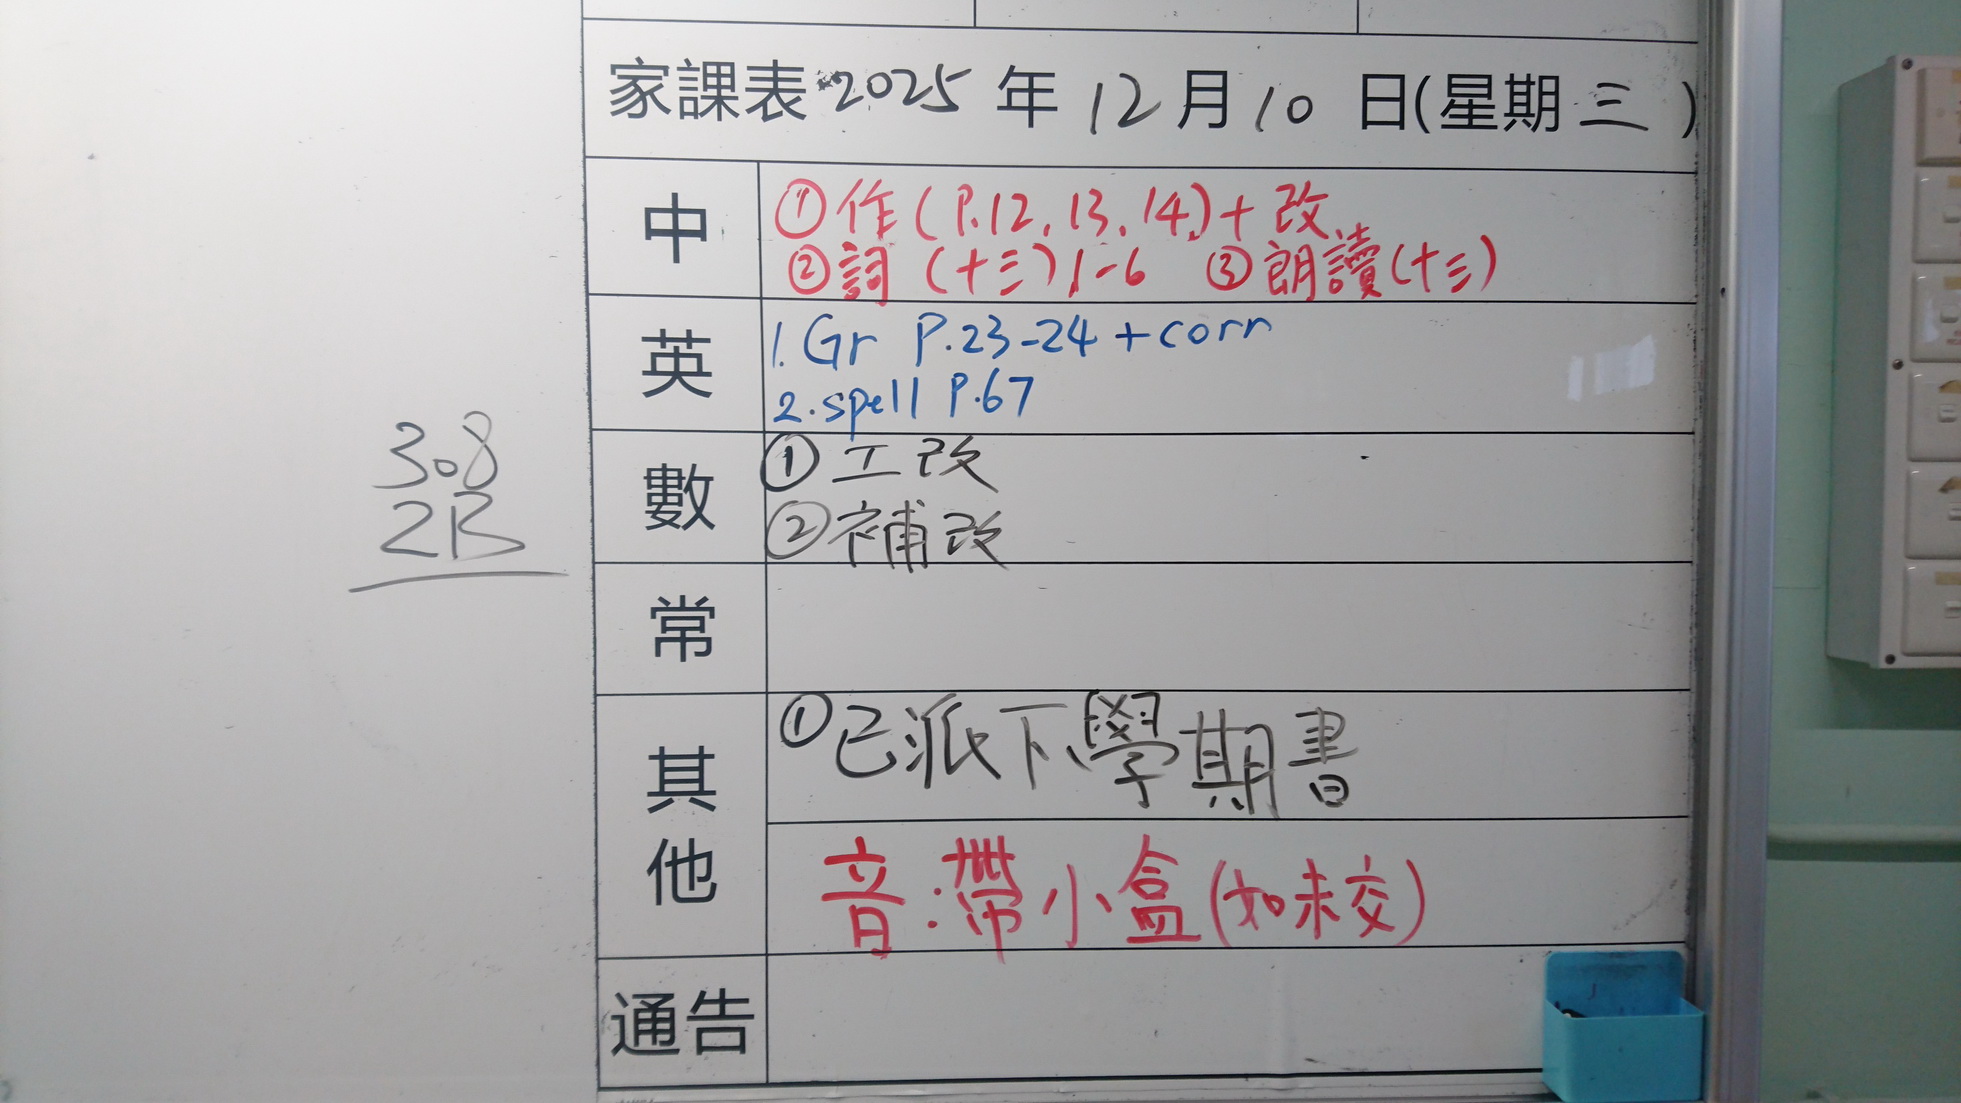 家課表 2025 年 12 月 10 日(星期 三 )
中
①作(P.12, 13, 14)+改
②詞(十三)1-6 ③朗讀(十三)
英
1. Gr P.23-24 + corr
2. spell P.67
數
①工改
②補改
308
2B
常
其他
①已派下學期書
音:帶小盒(如未交)
通告